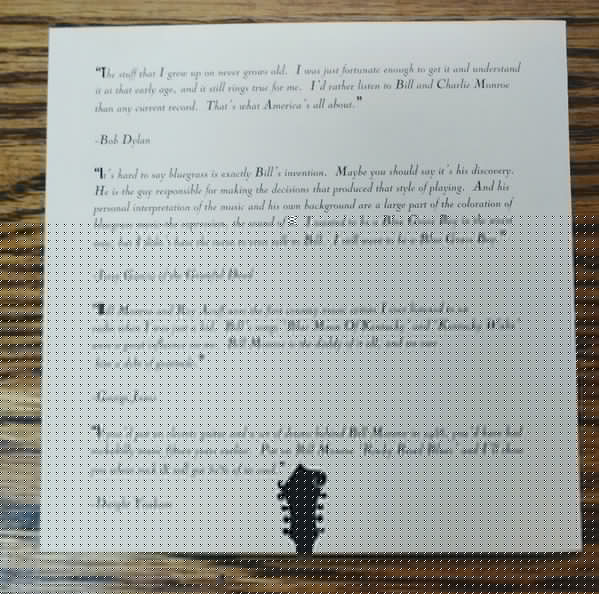 "The stuff that I grew up on never grows old. I was just fortunate enough to get it and understand
it at that early age, and it still rings true for me. I'd rather listen to Bill and Charlie Monroe
than any current record. That's what America's all about."
-Bob Dylan
"It's hard to say bluegrass is exactly Bill's invention. Maybe you should say it's his discovery.
He is the guy responsible for making the decisions that produced that style of playing. And his
personal interpretation of the music and his own background are a large part of the coloration of
bluegrass music-the expression, the sound of it. I wanted to be a Blue Grass Boy in the worst
way, but I didn't have the nerve to even talk to Bill. I still want to be a Blue Grass Boy."
-Jerry Garcia of the Grateful Dead
"Bill Monroe and Roy Acuff were the first country music artists I ever listened to on
radio when I was just a kid. Bill's songs "Blue Moon Of Kentucky" and "Kentucky Waltz"
were a great influence on me. Bill Monroe is the daddy of it all, and we owe
him a debt of gratitude."
-George Jones
"If you'd put an electric guitar and a set of drums behind Bill Monroe in you'd have had
rockabilly music fifteen years earlier. Put on Bill Monroe "Rocky Road Blues" and I'll show
you where rock & roll got of its soul."
-Dwight Yoakam